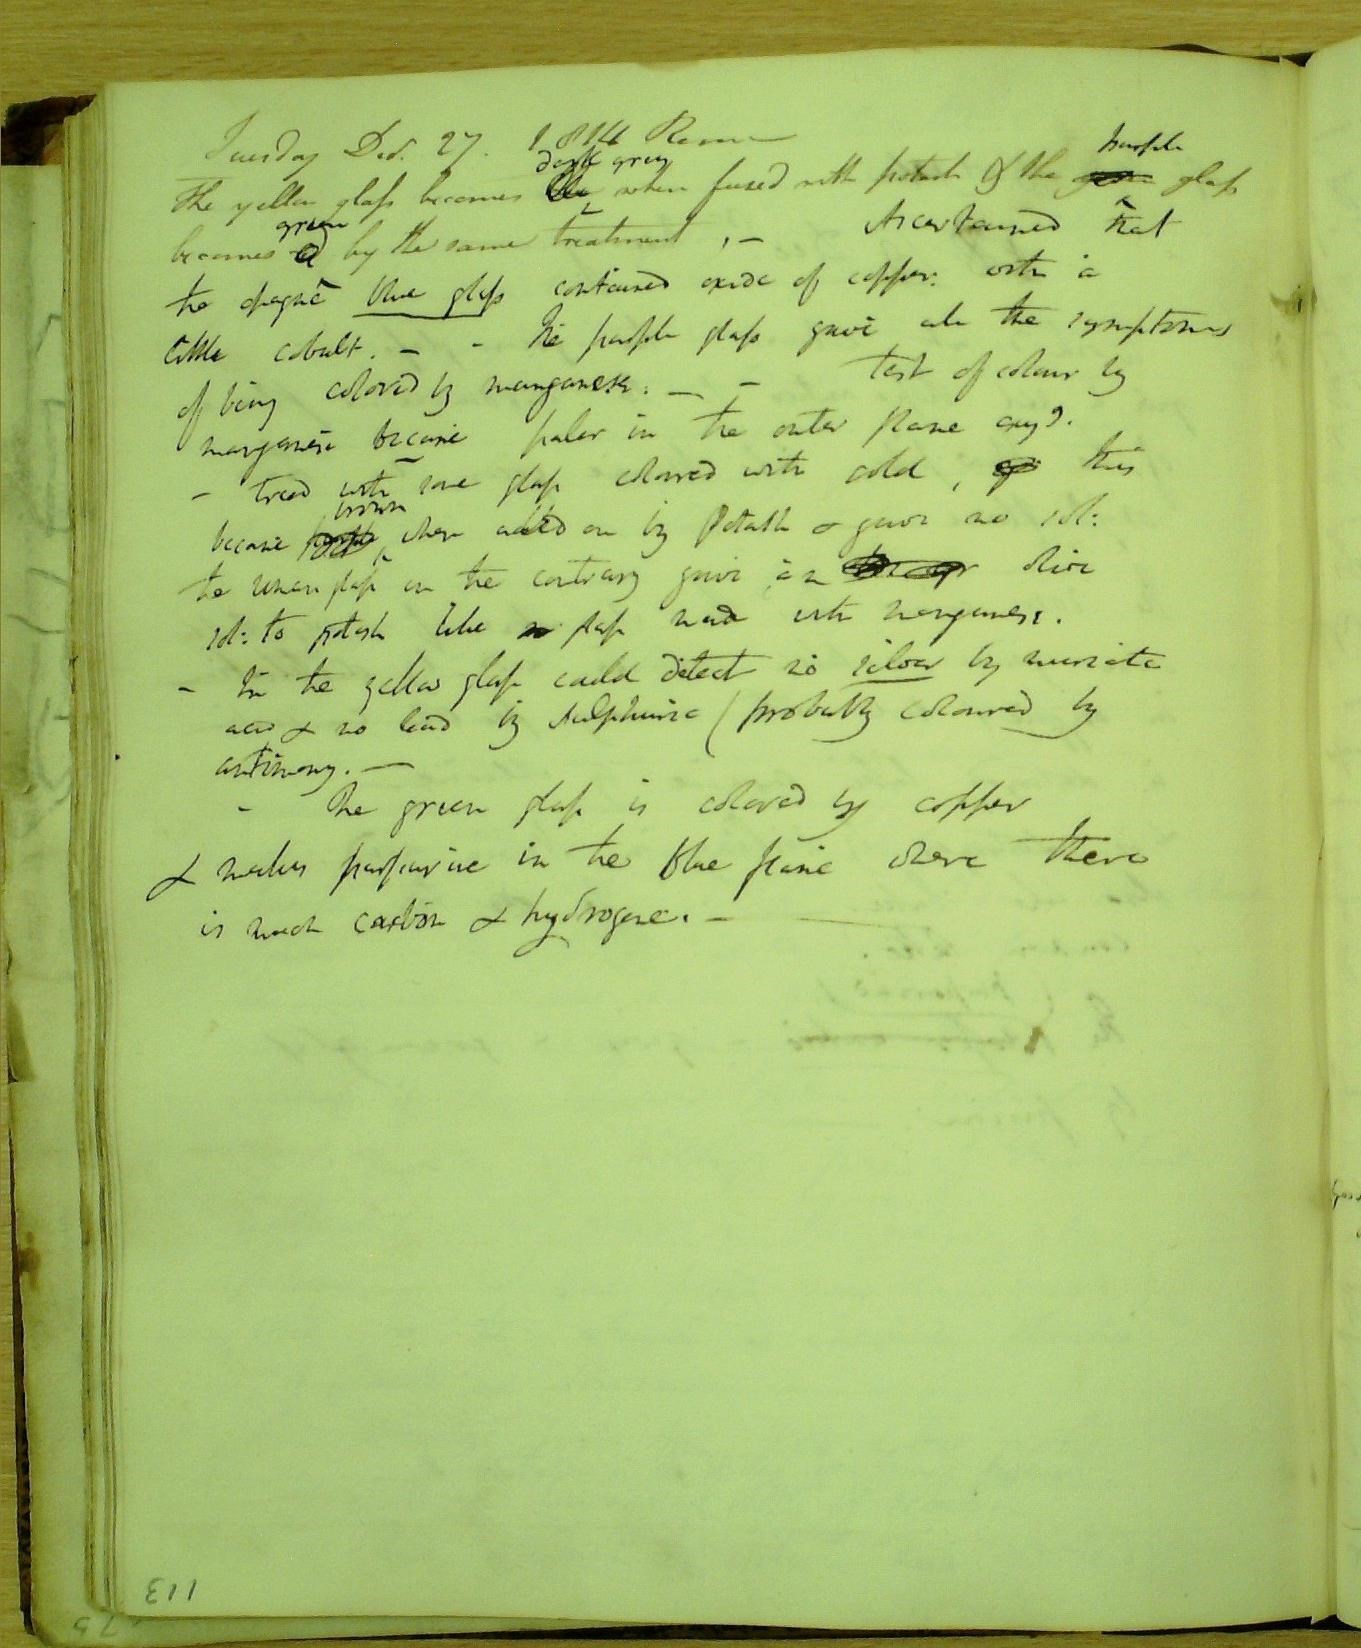 Tuesday Decr. 27. 1814 Rome
dark grey purple
The yellow glass becomes when fused with potash & the glass
green
becomes by the same treatment, — Ascertained that
the opaque blue glass contained oxide of copper: with a
little cobalt. — - The purple glass gave all the symptoms
of being colored by manganese. — — Test of colour by
manganese became paler in the outer flame
- tried with some glass coloured with gold, this
brown
became when acted on by Potash & gave no sol:
the glass on the contrary gave an olive
sol: to potash like glass made with manganese.
- In the yellow glass could detect no silver by muriatic
acid & no lead by sulphuric (probably coloured by
antimony. —
- The green glass is colored by copper
& makes purpurine in the blue flame where there
is much carbon & hydrogene. —
113